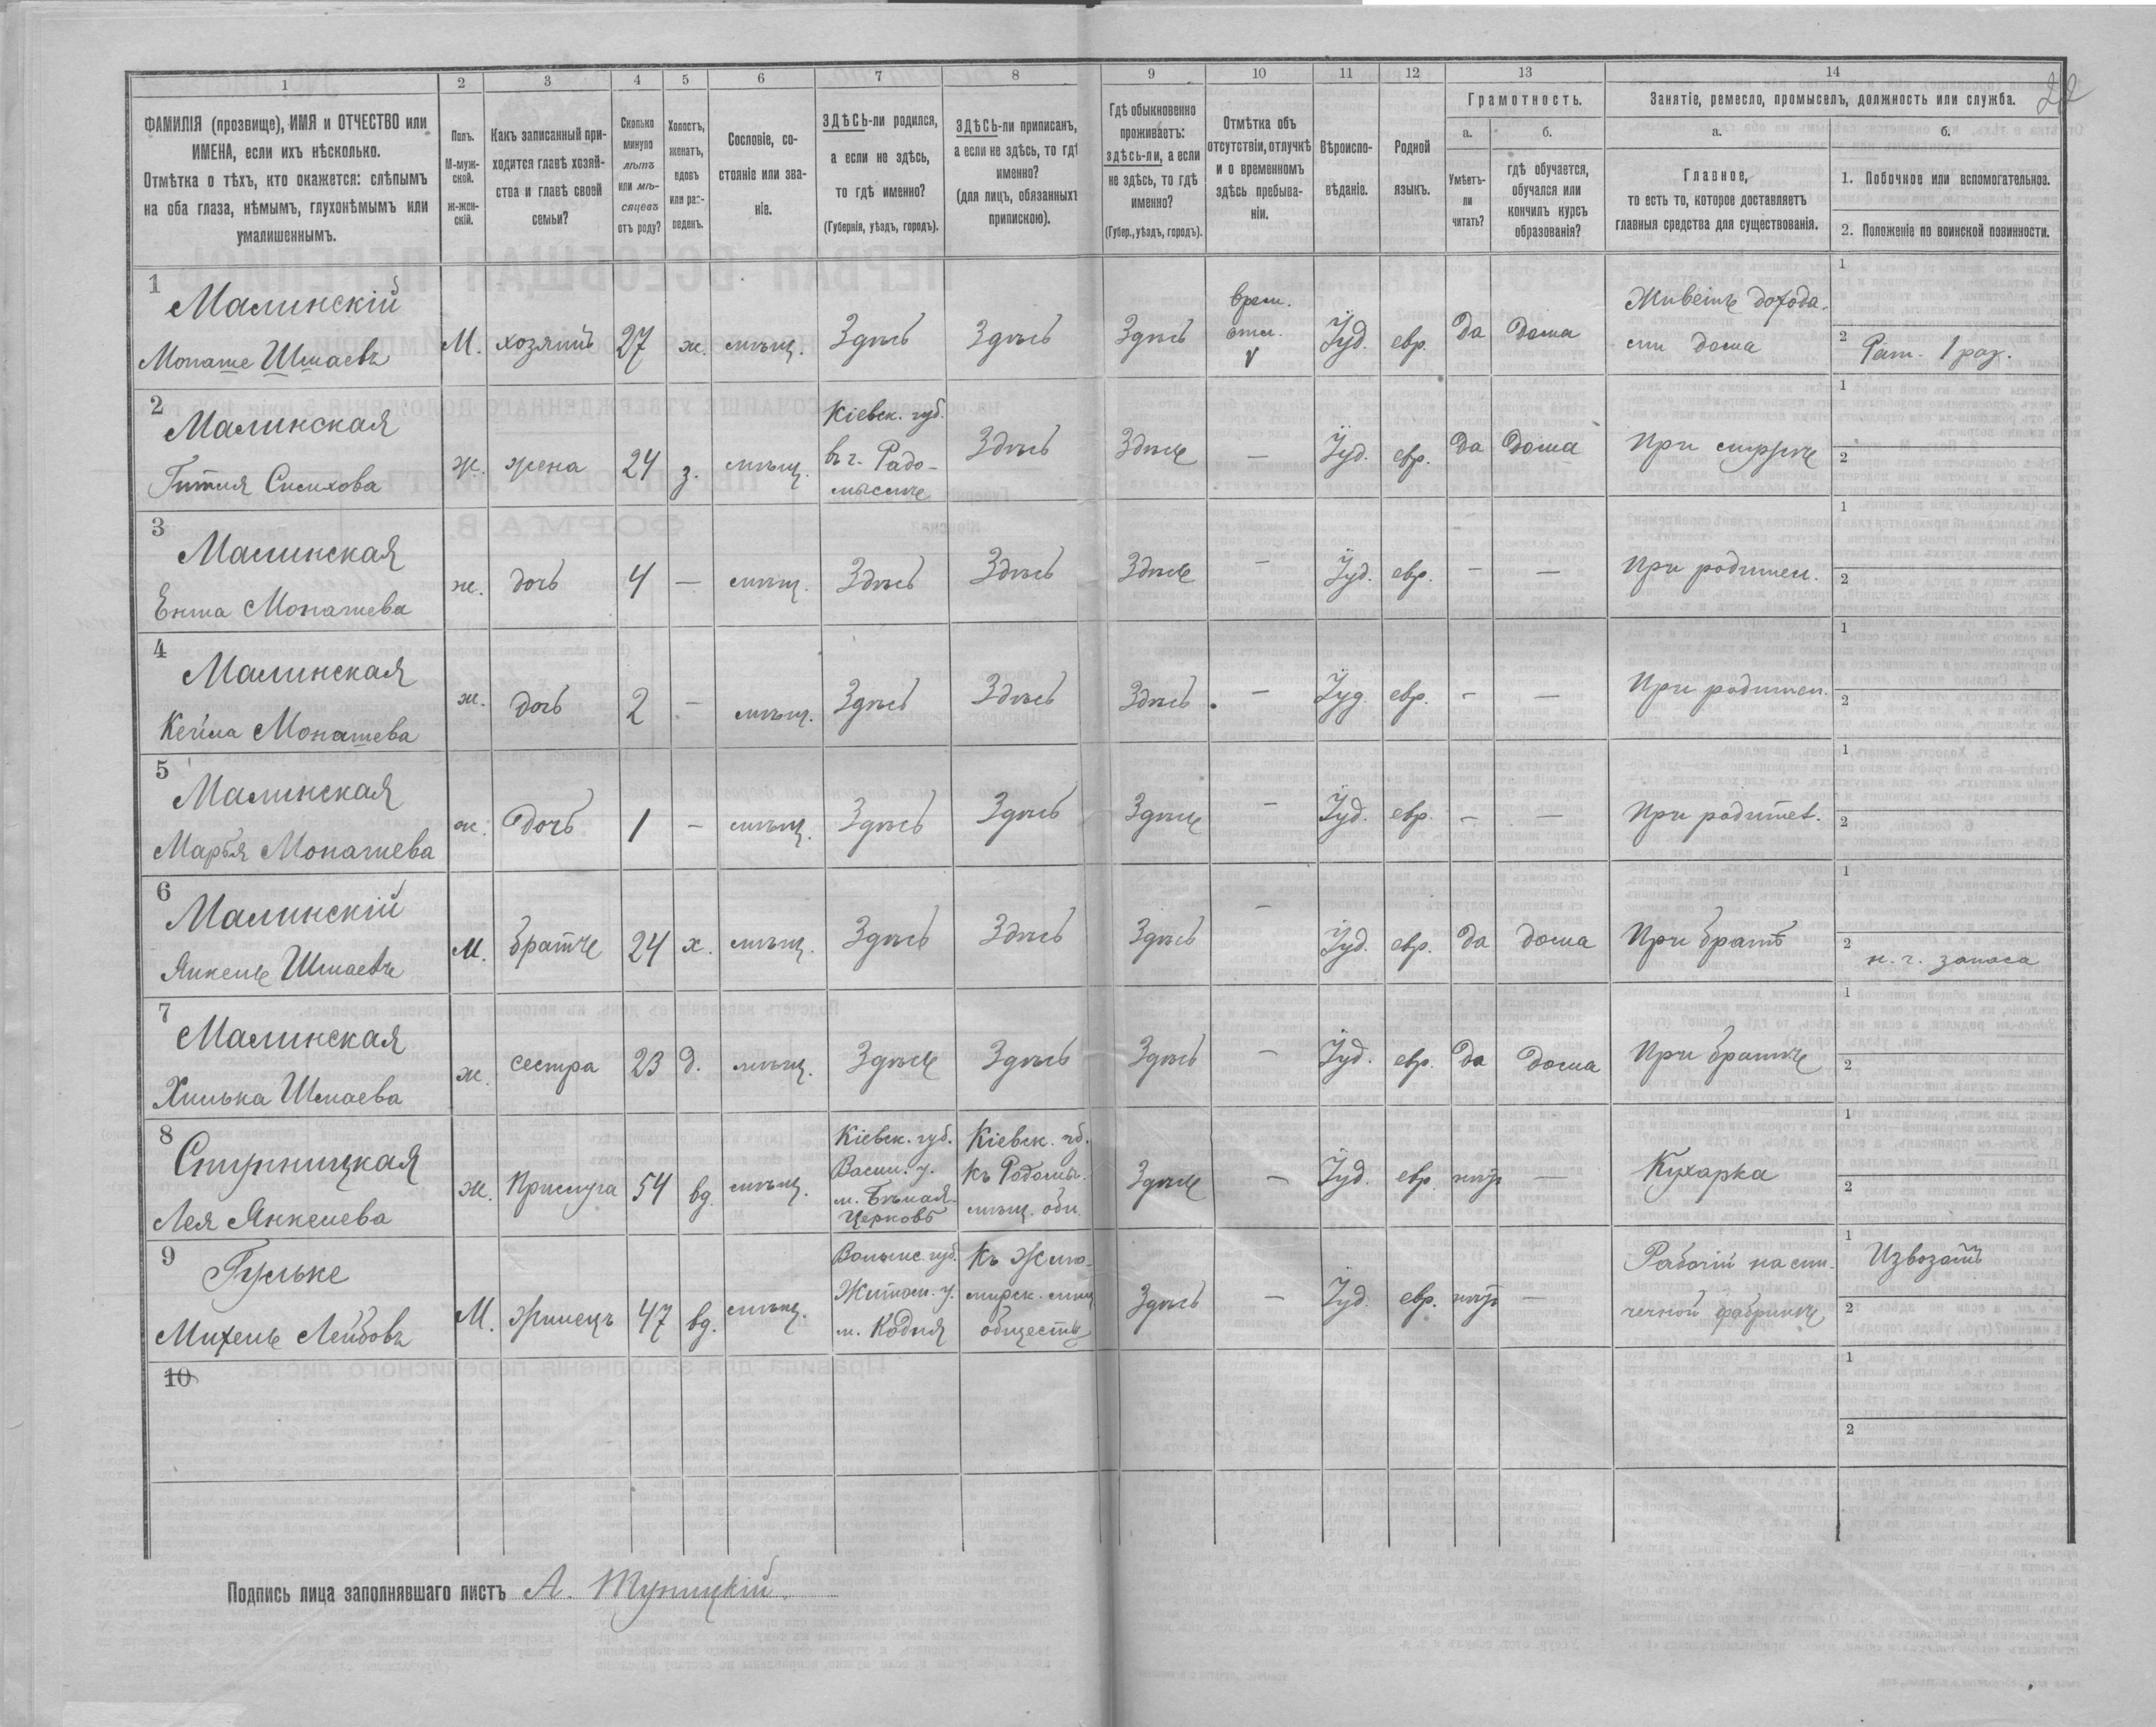 1 2 3 4 5 6 7 8 9 10 11 12 13 14
22
ФАМИЛІЯ (прозвище), ИМЯ и ОТЧЕСТВО или
ИМЕНА, если ихъ нѣсколько.
Отмѣтка о тѣхъ, кто окажется: слѣпымъ
на оба глаза, нѣмымъ, глухонѣмымъ или
умалишеннымъ.
Полъ.
М-муж-
ской.
ж-жен-
скій.
Какъ записанный при-
ходится главѣ хозяй-
ства и главѣ своей
семьи?
Сколько
минуло
лѣтъ
или мѣ-
сяцевъ
отъ роду?
Холостъ,
женатъ,
вдовъ
или раз-
веденъ.
Сословіе, со-
стояніе или зва-
ніе.
ЗДѢСЬ-ли родился,
а если не здѣсь,
то гдѣ именно?
(Губернія, уѣздъ, городъ).
ЗДѢСЬ-ли приписанъ,
а если не здѣсь, то гдѣ
именно?
(для лицъ, обязанныхъ
припискою).
Гдѣ обыкновенно
проживаетъ:
здѣсь-ли, а если
не здѣсь, то гдѣ
именно?
(Губер., уѣздъ, городъ).
Отмѣтка объ
отсутствіи, отлучкѣ
и о временномъ
здѣсь пребыва-
ніи.
Вѣроиспо-
вѣданіе.
Родной
языкъ.
Грамотность.
а.
Умѣетъ-
ли
читать?
б.
гдѣ обучается,
обучался или
кончилъ курсъ
образованія?
Занятіе, ремесло, промыселъ, должность или служба.
а.
Главное,
то есть то, которое доставляетъ
главныя средства для существованія.
б.
1. Побочное или вспомогательное.
2. Положеніе по воинской повинности.
1
Малинскій
Монаше Шмаевъ
М. хозяинъ 27 ж. мѣщ. Здѣсь Здѣсь Здѣсь
врем.
отл.
V
Іуд. евр. да дома
Живетъ дохода-
ми дома
1
2 Рат. 1 раз.
2
Малинская
Гитля
ж. жена 24 з. мѣщ.
Кіевск. губ.
въ г. Радо-
мыслѣ
Здѣсь Здѣсь — Іуд. евр. да дома При мужѣ
1
2
3
Малинская
Ента Монашева
ж. дочь 4 — мѣщ. Здѣсь Здѣсь Здѣсь — Іуд. евр. — — При родител.
1
2
4
Малинская
Кейла Монашева
ж. дочь 2 — мѣщ. Здѣсь Здѣсь Здѣсь — Іуд. евр. — — При родител.
1
2
5
Малинская
Марья Монашева
ж. дочь 1 — мѣщ. Здѣсь Здѣсь Здѣсь — Іуд. евр. — — При родител.
1
2
6
Малинскій
Янкель Шмаевъ
М. братъ 24 х. мѣщ. Здѣсь Здѣсь Здѣсь — Іуд. евр. да дома При братѣ
1
2 н. ч. запаса
7
Малинская
Хинька Шмаева
ж. сестра 23 д. мѣщ. Здѣсь Здѣсь Здѣсь — Іуд. евр. да дома При братѣ
1
2
8
Лея Янкелева
ж. Прислуга 54 вд. мѣщ.
Кіевск. губ.
Васил. у.
м. Бѣлая-
Церковь
Кіевск. гб.
къ Радомы.
мѣщ. общ.
Здѣсь — Іуд. евр. нѣт — Кухарка
1
2
9
Гульке
Михель Лейбовъ
М. жилецъ 47 вд. мѣщ.
Волынс. губ.
Житом. у.
м. Кодня
къ Жито-
мирск. мѣщ
обществу
Здѣсь — Іуд. евр. нѣт —
Рабочій на спи-
чечной фабрикѣ
1 Извозомъ
2
10
1
2
Подпись лица заполнявшаго листъ А. Тупицкій